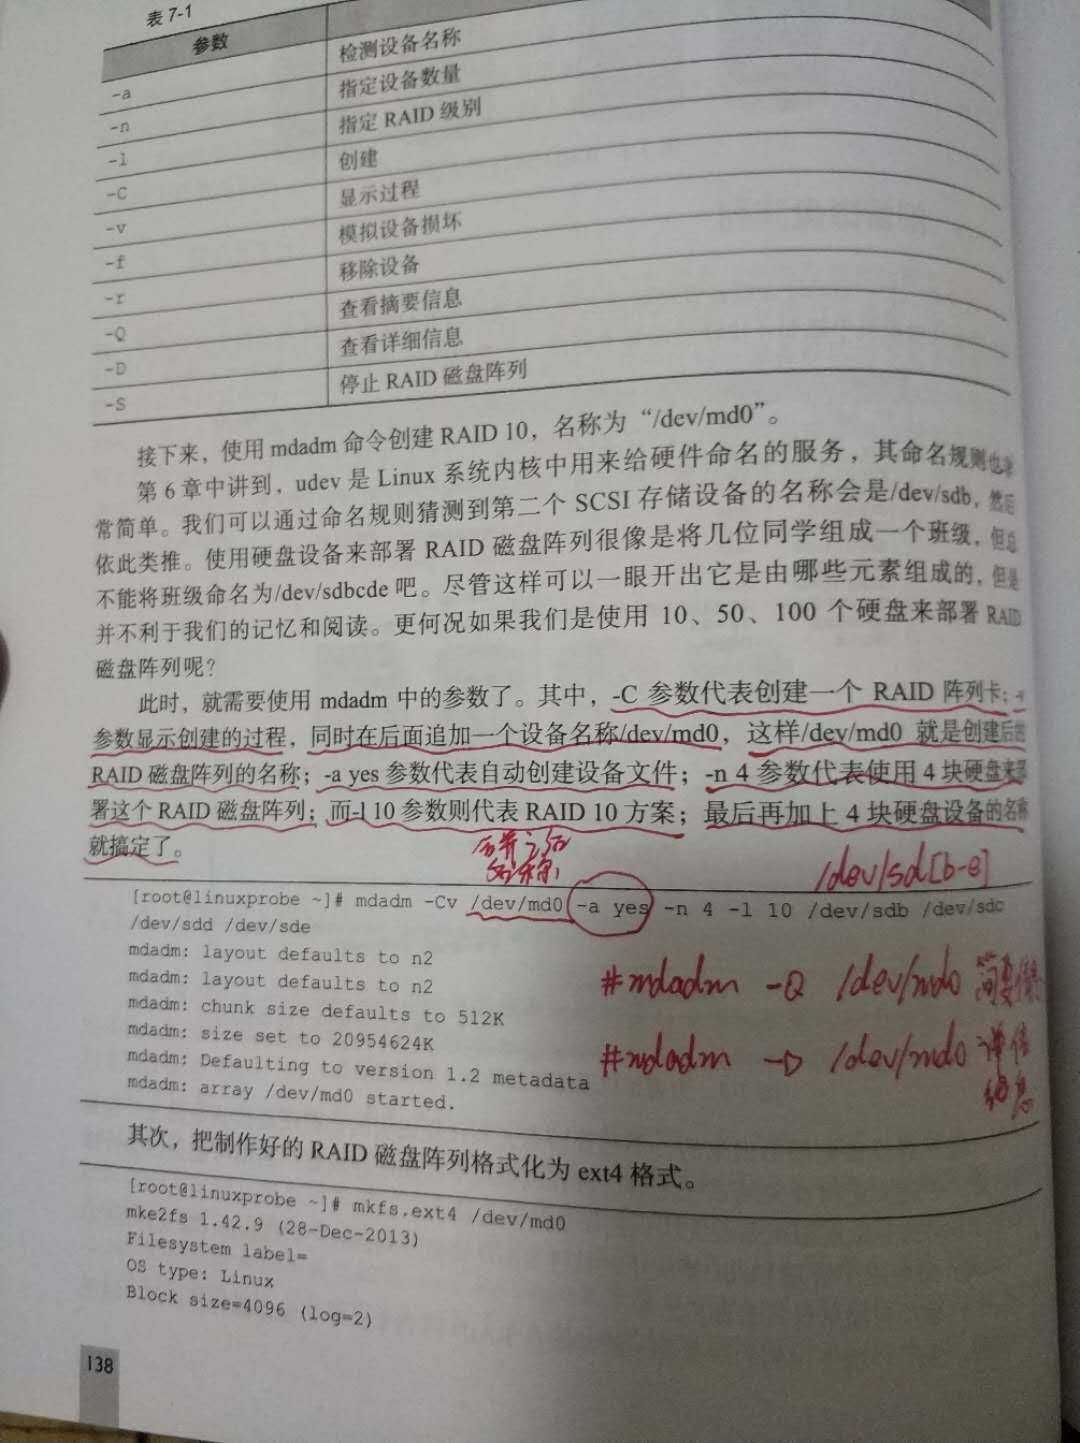 表 7-1
参数
-a 检测设备名称
-n 指定设备数量
-l 指定 RAID 级别
-C 创建
-v 显示过程
-f 模拟设备损坏
-r 移除设备
-Q 查看摘要信息
-D 查看详细信息
-S 停止 RAID 磁盘阵列
接下来，使用 mdadm 命令创建 RAID 10，名称为“/dev/md0”。
第 6 章中讲到，udev 是 Linux 系统内核中用来给硬件命名的服务，其命名规则也
常简单。我们可以通过命名规则猜测到第二个 SCSI 存储设备的名称会是/dev/sdb，然后
依此类推。使用硬盘设备来部署 RAID 磁盘阵列很像是将几位同学组成一个班级，但总
不能将班级命名为/dev/sdbcde 吧。尽管这样可以一眼开出它是由哪些元素组成的，但是
并不利于我们的记忆和阅读。更何况如果我们是使用 10、50、100 个硬盘来部署 RAID
磁盘阵列呢？
此时，就需要使用 mdadm 中的参数了。其中，-C 参数代表创建一个 RAID 阵列卡；
参数显示创建的过程，同时在后面追加一个设备名称/dev/md0，这样/dev/md0 就是创建后的
RAID 磁盘阵列的名称；-a yes 参数代表自动创建设备文件；-n 4 参数代表使用 4 块硬盘来部
署这个 RAID 磁盘阵列；而-l 10 参数则代表 RAID 10 方案；最后再加上 4 块硬盘设备的名称
就搞定了。
/dev/sd[b-e]
[root@linuxprobe ~]# mdadm -Cv /dev/md0 -a yes -n 4 -l 10 /dev/sdb /dev/sdc
/dev/sdd /dev/sde
mdadm: layout defaults to n2
mdadm: layout defaults to n2
mdadm: chunk size defaults to 512K
mdadm: size set to 20954624K
mdadm: Defaulting to version 1.2 metadata
mdadm: array /dev/md0 started.
#mdadm -Q /dev/md0 简要信息
#mdadm -D /dev/md0 详细信息
其次，把制作好的 RAID 磁盘阵列格式化为 ext4 格式。
[root@linuxprobe ~]# mkfs.ext4 /dev/md0
mke2fs 1.42.9 (28-Dec-2013)
Filesystem label=
OS type: Linux
Block size=4096 (log=2)
138